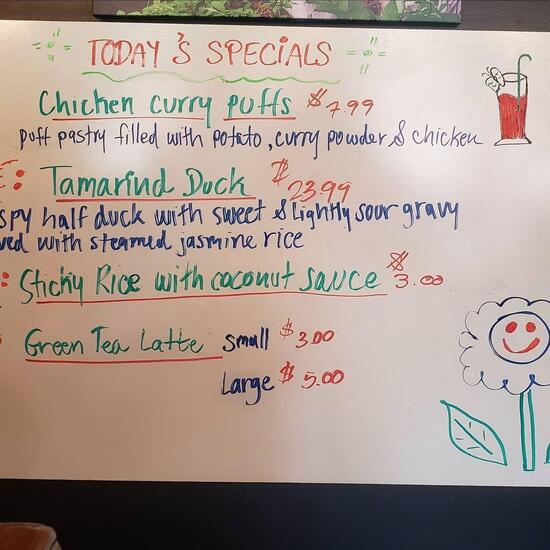 TODAY'S SPECIALS
Chicken curry puffs $7.99
puff pastry filled with potato, curry powder & chicken
: Tamarind Duck $23.99
spy half duck with sweet & lightly sour gravy
ved with steamed jasmine rice
: Sticky Rice with coconut sauce $3.00
Green Tea Latte small $3.00
Large $5.00